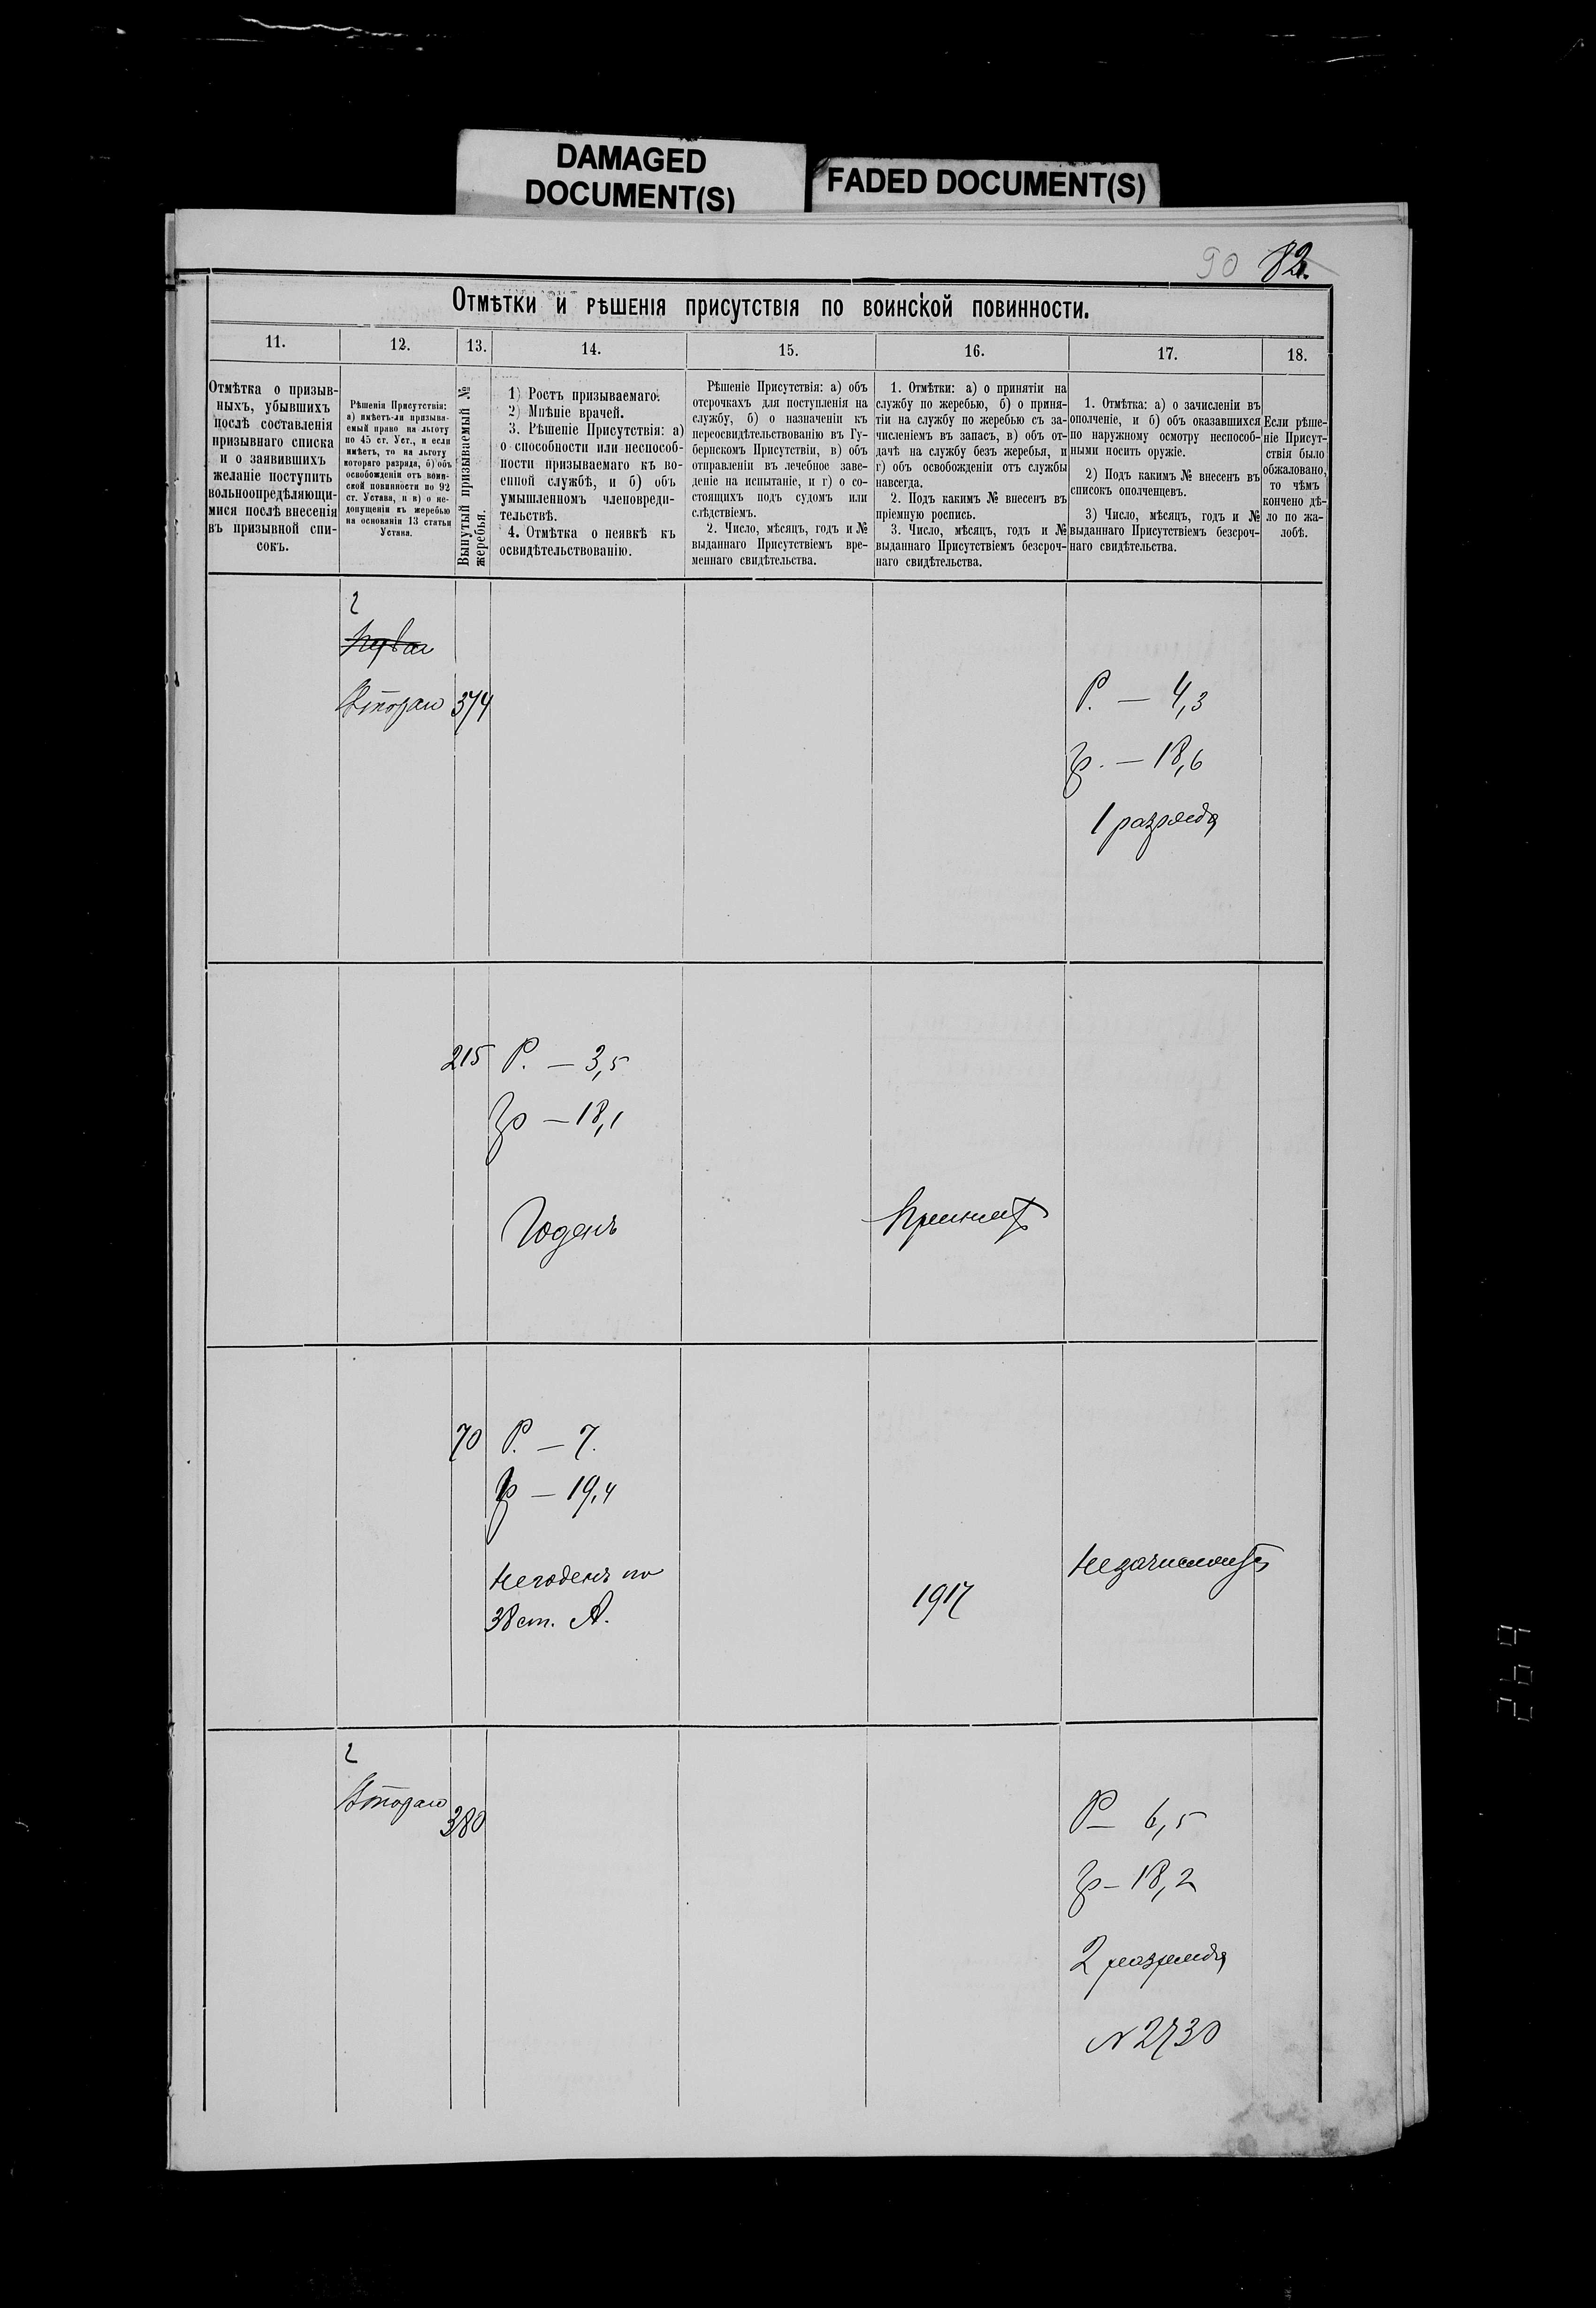 DAMAGED
DOCUMENT(S)
FADED DOCUMENT(S)
90 82.
Отмѣтки и рѣшенія присутствія по воинской повинности.
11.
12.
13.
14.
15.
16.
17.
18.
Отмѣтка о призыв-
ныхъ, убывшихъ
послѣ составленія
призывнаго списка
и о заявившихъ
желаніе поступить
вольноопредѣляющи-
мися послѣ внесенія
въ призывной спи-
сокъ.
Рѣшенія Присутствія:
а) имѣетъ-ли призыва-
емый право на льготу
по 45 ст. Уст., и если
имѣетъ, то на льготу
котораго разряда, б) объ
освобожденіи отъ воин-
ской повинности по 92
ст. Устава, и в) о не-
допущеніи къ жеребью
на основаніи 13 статьи
Устава.
Вынутый призываемый №
жеребья.
1) Ростъ призываемаго.
2) Мнѣніе врачей.
3. Рѣшеніе Присутствія: а)
о способности или неспособ-
ности призываемаго къ во-
енной службѣ, и б) объ
умышленномъ членовреди-
тельствѣ.
4. Отмѣтка о неявкѣ къ
освидѣтельствованію.
Рѣшеніе Присутствія: а) объ
отсрочкахъ для поступленія на
службу, б) о назначеніи къ
переосвидѣтельствованію въ Гу-
бернскомъ Присутствіи, в) объ
отправленіи въ лечебное заве-
деніе на испытаніе, и г) о со-
стоящихъ подъ судомъ или
слѣдствіемъ.
2. Число, мѣсяцъ, годъ и №
выданнаго Присутствіемъ вре-
меннаго свидѣтельства.
1. Отмѣтки: а) о принятіи на
службу по жеребью, б) о приня-
тіи на службу по жеребью съ за-
численіемъ въ запасъ, в) объ от-
дачѣ на службу безъ жеребья, и
г) объ освобожденіи отъ службы
навсегда.
2. Подъ какимъ № внесенъ въ
пріемную роспись.
3. Число, мѣсяцъ, годъ и №
выданнаго Присутствіемъ безсроч-
наго свидѣтельства.
1. Отмѣтка: а) о зачисленіи въ
ополченіе, и б) объ оказавшихся
по наружному осмотру неспособ-
ными носить оружіе.
2) Подъ какимъ № внесенъ въ
списокъ ополченцевъ.
3) Число, мѣсяцъ, годъ и №
выданнаго Присутствіемъ безсроч-
наго свидѣтельства.
Если рѣше-
ніе Присут-
ствія было
обжаловано,
то чѣмъ
кончено дѣ-
ло по жа-
лобѣ.
2
Первая
Втораго 374
Р. — 4,3
гр. — 18,6
1 разряда
215 Р. — 3,5
гр — 18,1
Годенъ
Принятъ
70 Р. — 7.
гр — 19,4
Негоденъ по
38 ст. А.
1917
Незачислятъ
2
Втораго
380
Р — 6,5
гр — 18,2
2 разряда
N 2730
269